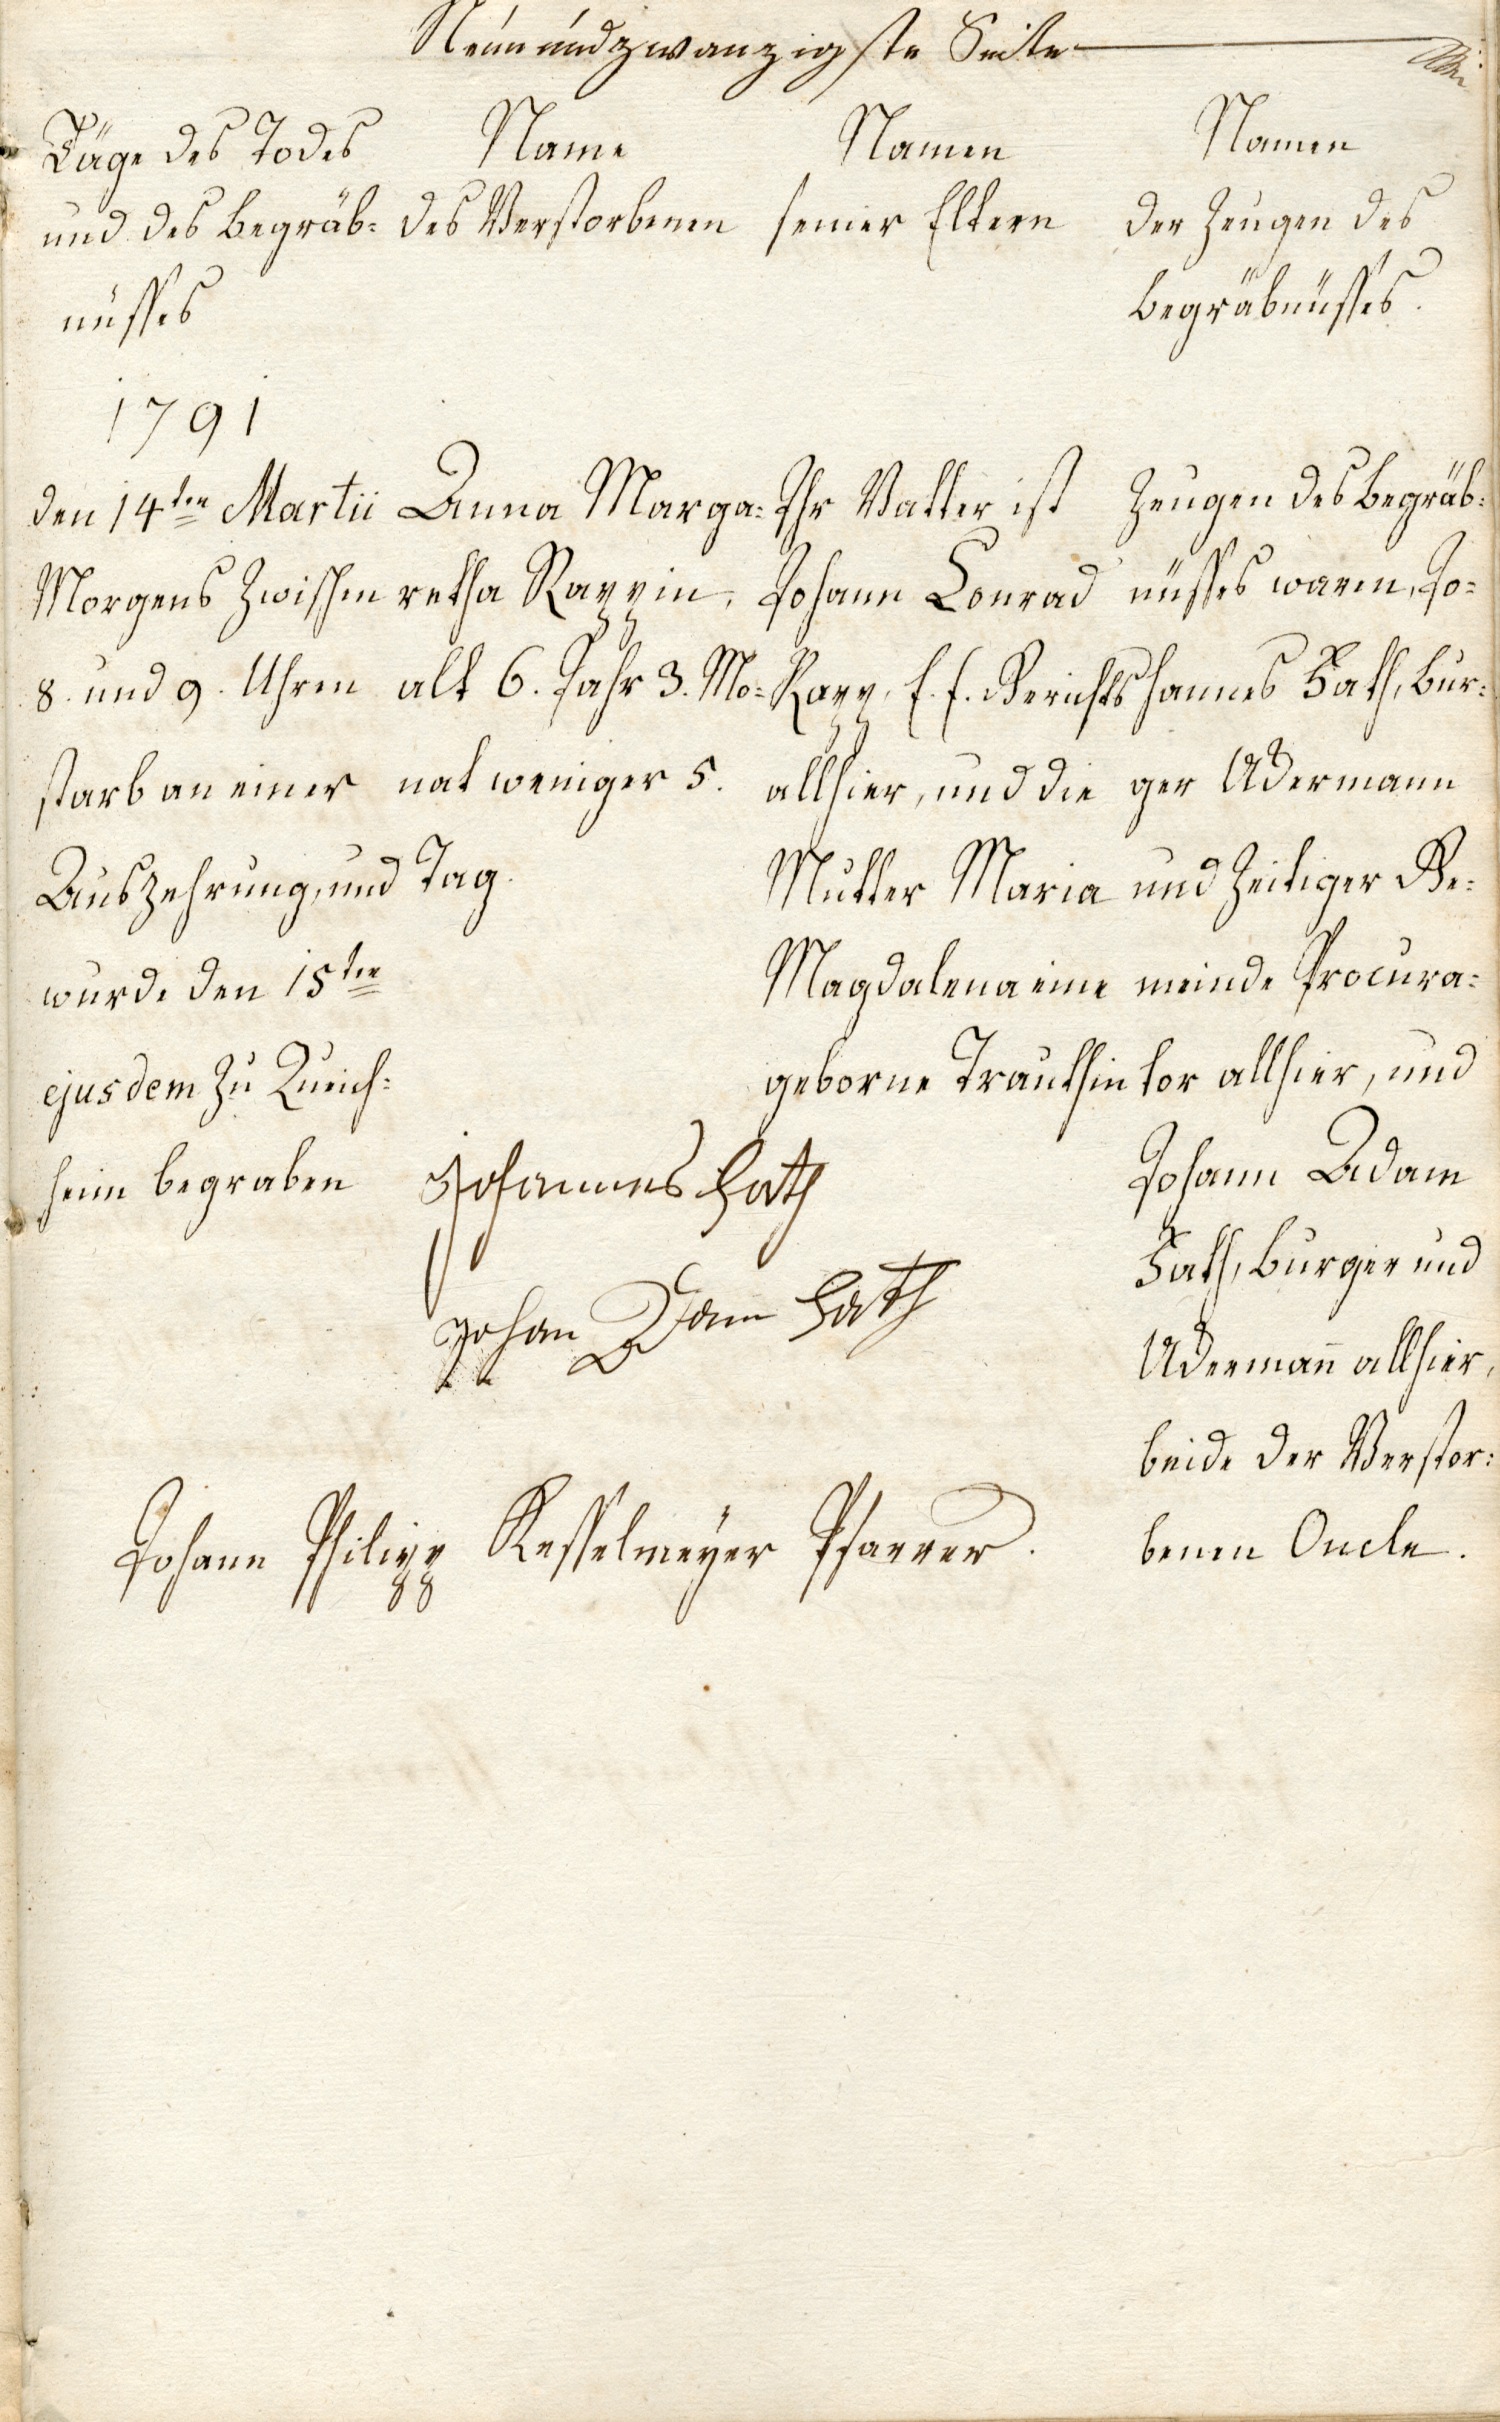 Neunundzwanzigste Seite
Täge des Todes
und des Begräb=
nüsses
Name
des Verstorbenen
Namen
seiner Eltern
Namen
der Zeugen des
Begräbnüsses.
1791
den 14ten Martii
Morgens zwischen
8. und 9. Uhren
starb an einer
Auszehrung, und
wurde den 15ten
ejusdem zu Queich=
heim begraben
Anna Marga=
retha Rappin,
alt 6. Jahr 3. Mo=
nat weniger 5.
Tag.
Ihr Vatter ist
Johann Conrad
Rapp, E. E. Gerichts
allhier, und die
Mutter Maria
Magdalena eine
geborne Trauthin
Zeugen des Begräb=
nüsses waren, Jo=
hannes Hath, Bur=
ger Adermann
und zeitiger Ge=
meinde Procura=
tor allhier, und
Johann Adam
Hath, Burger und
Adermañ allhier,
beide der Verstor=
benen Oncle.
Johannes Hath
Johan Dam Hath
Johann Philipp Kesselmeÿer Pfarrer.